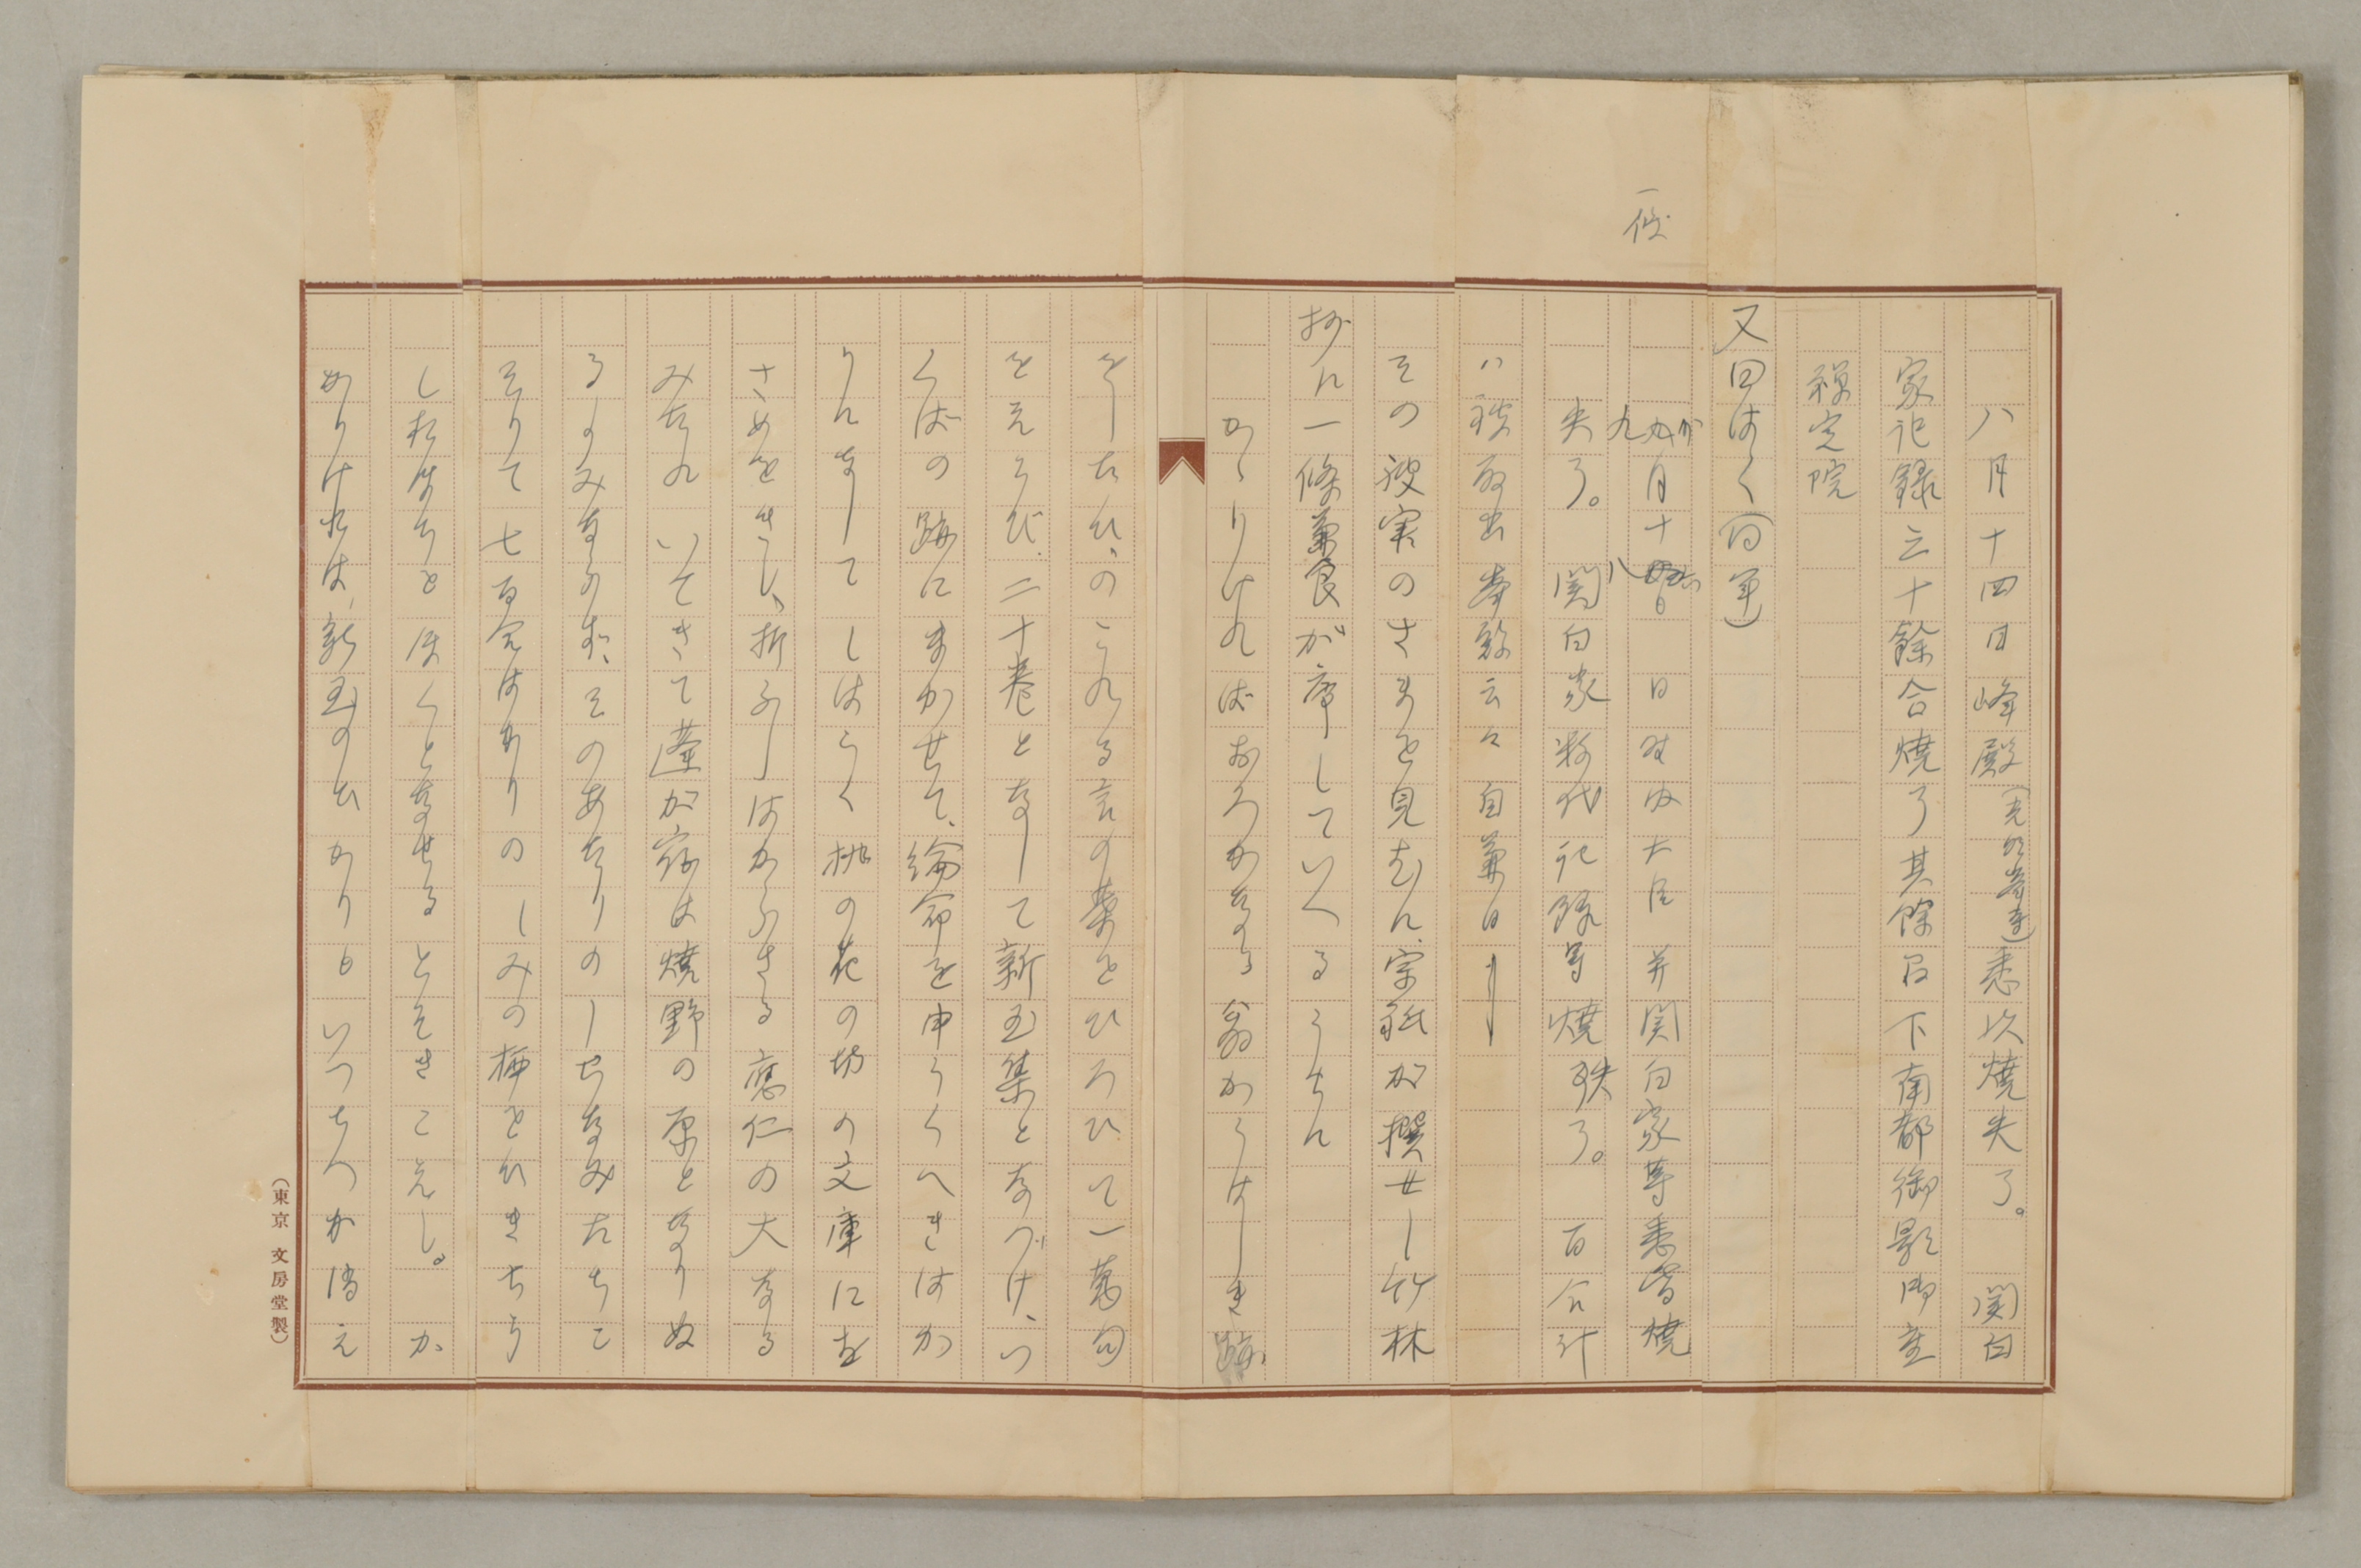 一條
八月十四日峰殿(光明峯寺)悉以焼失了。 関白
家記録三十餘合焼了其餘召下南都御影御座
禅定院
又曰はく(同軍)
九月十八日 日野内大臣并関白家等悉皆焼
失了。 関白家数代記録等焼失了。百合計
ハ被取出 云々 自兼日
その被害のさまを見むに、宗祇が撰せし竹林
抄に一條兼良が序していへるうちに
かゝりければおろかなる翁かうけしき跡
をしたひ、のこれる言の葉をひろひて一萬句
をえらび、二十巻となして新玉集となづけ、つ
くばの跡にまかせて、綸命を申うくへきはか
りになしてしはらく桃の花の坊の文庫にを
さめをきし、折ふしはからさる應仁の大なる
みたれいてきて蓬が宿は焼野の原となりぬ
るのみならす、そのあたりのしらなみたちこ
そりて七百合はかりのしみの栖をひきちら
しれうちをほくとなせるとそきこえし。か
かりけれは、新玉のひかりもいつちへか消え
(東京 文房堂製)